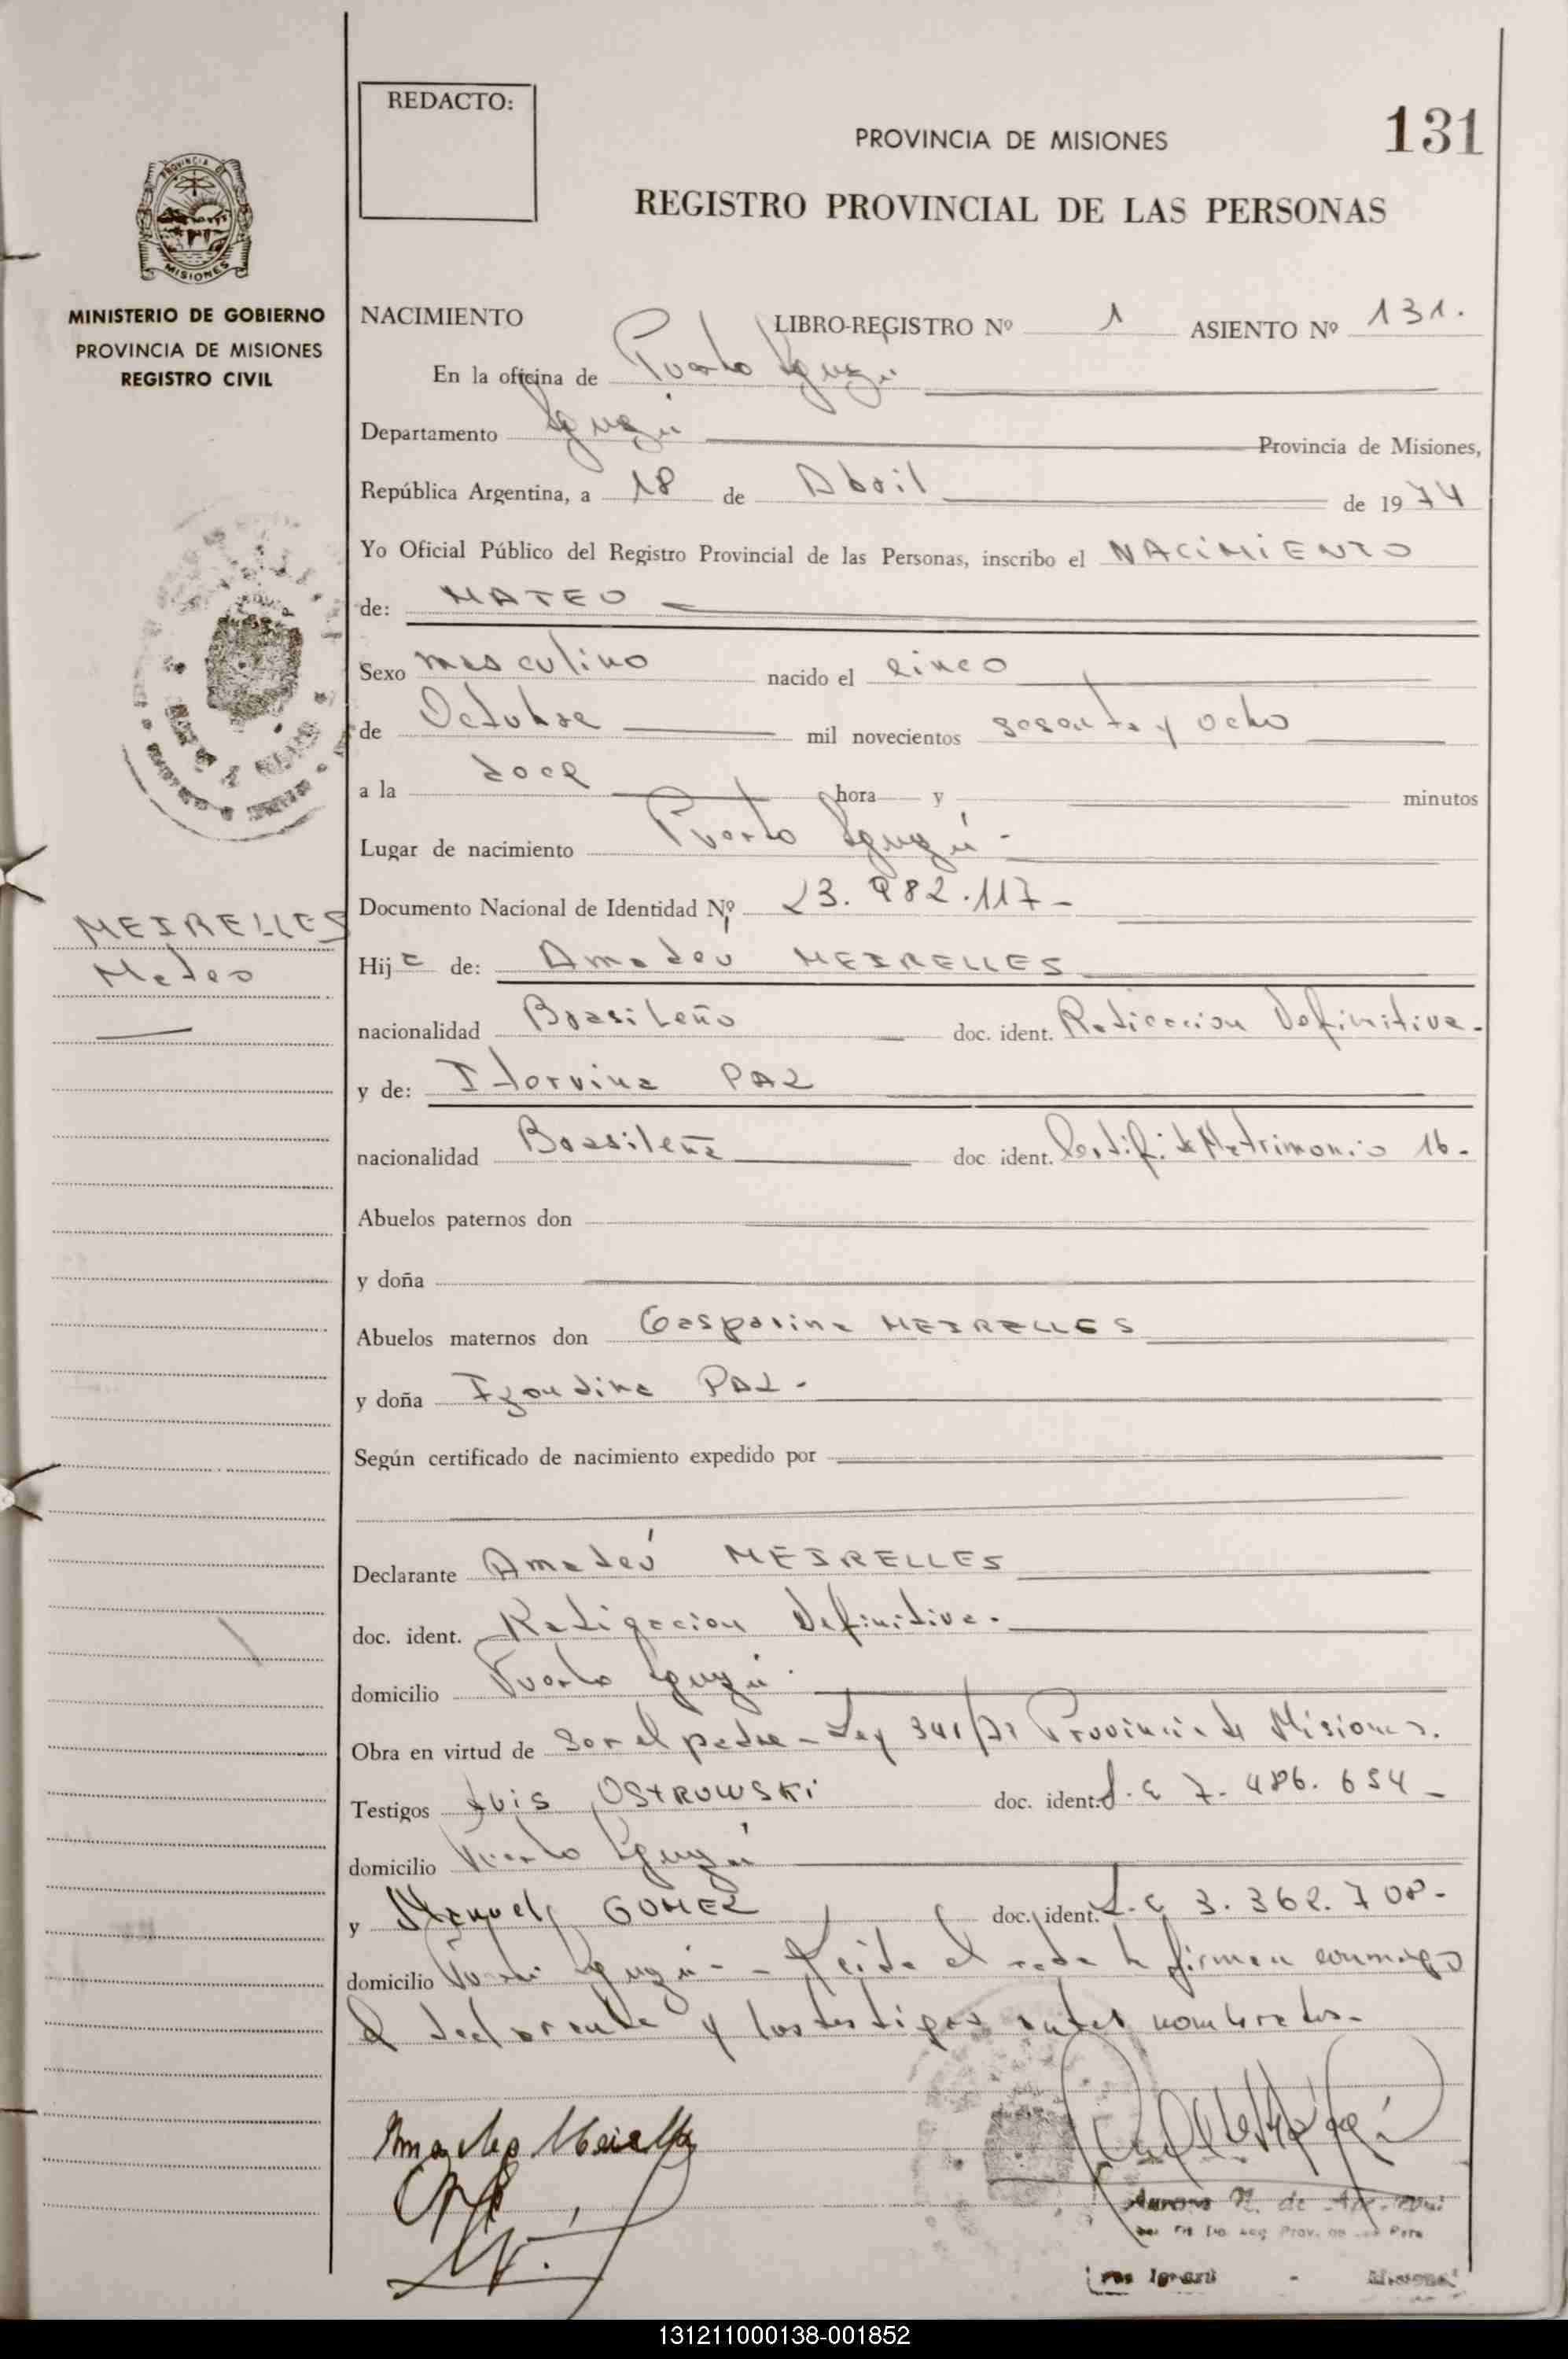 REDACTO:
PROVINCIA DE MISIONES
131
REGISTRO PROVINCIAL DE LAS PERSONAS
PROVINCIA DE
MISIONES
MINISTERIO DE GOBIERNO
PROVINCIA DE MISIONES
REGISTRO CIVIL
NACIMIENTO LIBRO-REGISTRO Nº 1 ASIENTO Nº 131.
En la oficina de Puerto Iguazú
Departamento Iguazú Provincia de Misiones,
República Argentina, a 18 de Abril de 1974
Yo Oficial Público del Registro Provincial de las Personas, inscribo el NACIMIENTO
de: MATEO
Sexo masculino nacido el cinco
de Octubre mil novecientos sesenta y ocho
a la doce hora y minutos
Lugar de nacimiento Puerto Iguazú -
Documento Nacional de Identidad Nº 23.982.117-
MEIRELLES
Mateo
Hijo de: Amadeu MEIRELLES
nacionalidad Brasileño doc. ident. Radicación Definitiva.
y de: Itorvina PAZ
nacionalidad Brasileña doc ident. Certifi. de Matrimonio 16.
Abuelos paternos don
y doña
Abuelos maternos don Gasparino MEIRELLES
y doña PAZ.
Según certificado de nacimiento expedido por
Declarante Amadeú MEIRELLES
doc. ident. Radicación Definitiva.
domicilio Puerto Iguazú.
Obra en virtud de Ser el padre - Ley 341/71 Provincia de Misiones.
Testigos Luis OSTROWSKI doc. ident. L.E 7.486.654-
domicilio Puerto Iguazú
y Manuel GOMEZ doc. ident. L.E 3.362.708-
domicilio Puerto Iguazú-- Leída el acta la firman conmigo
el declarante y los testigos antes nombrados-
Aurora N. de
Iguazú - Misiones
131211000138-001852